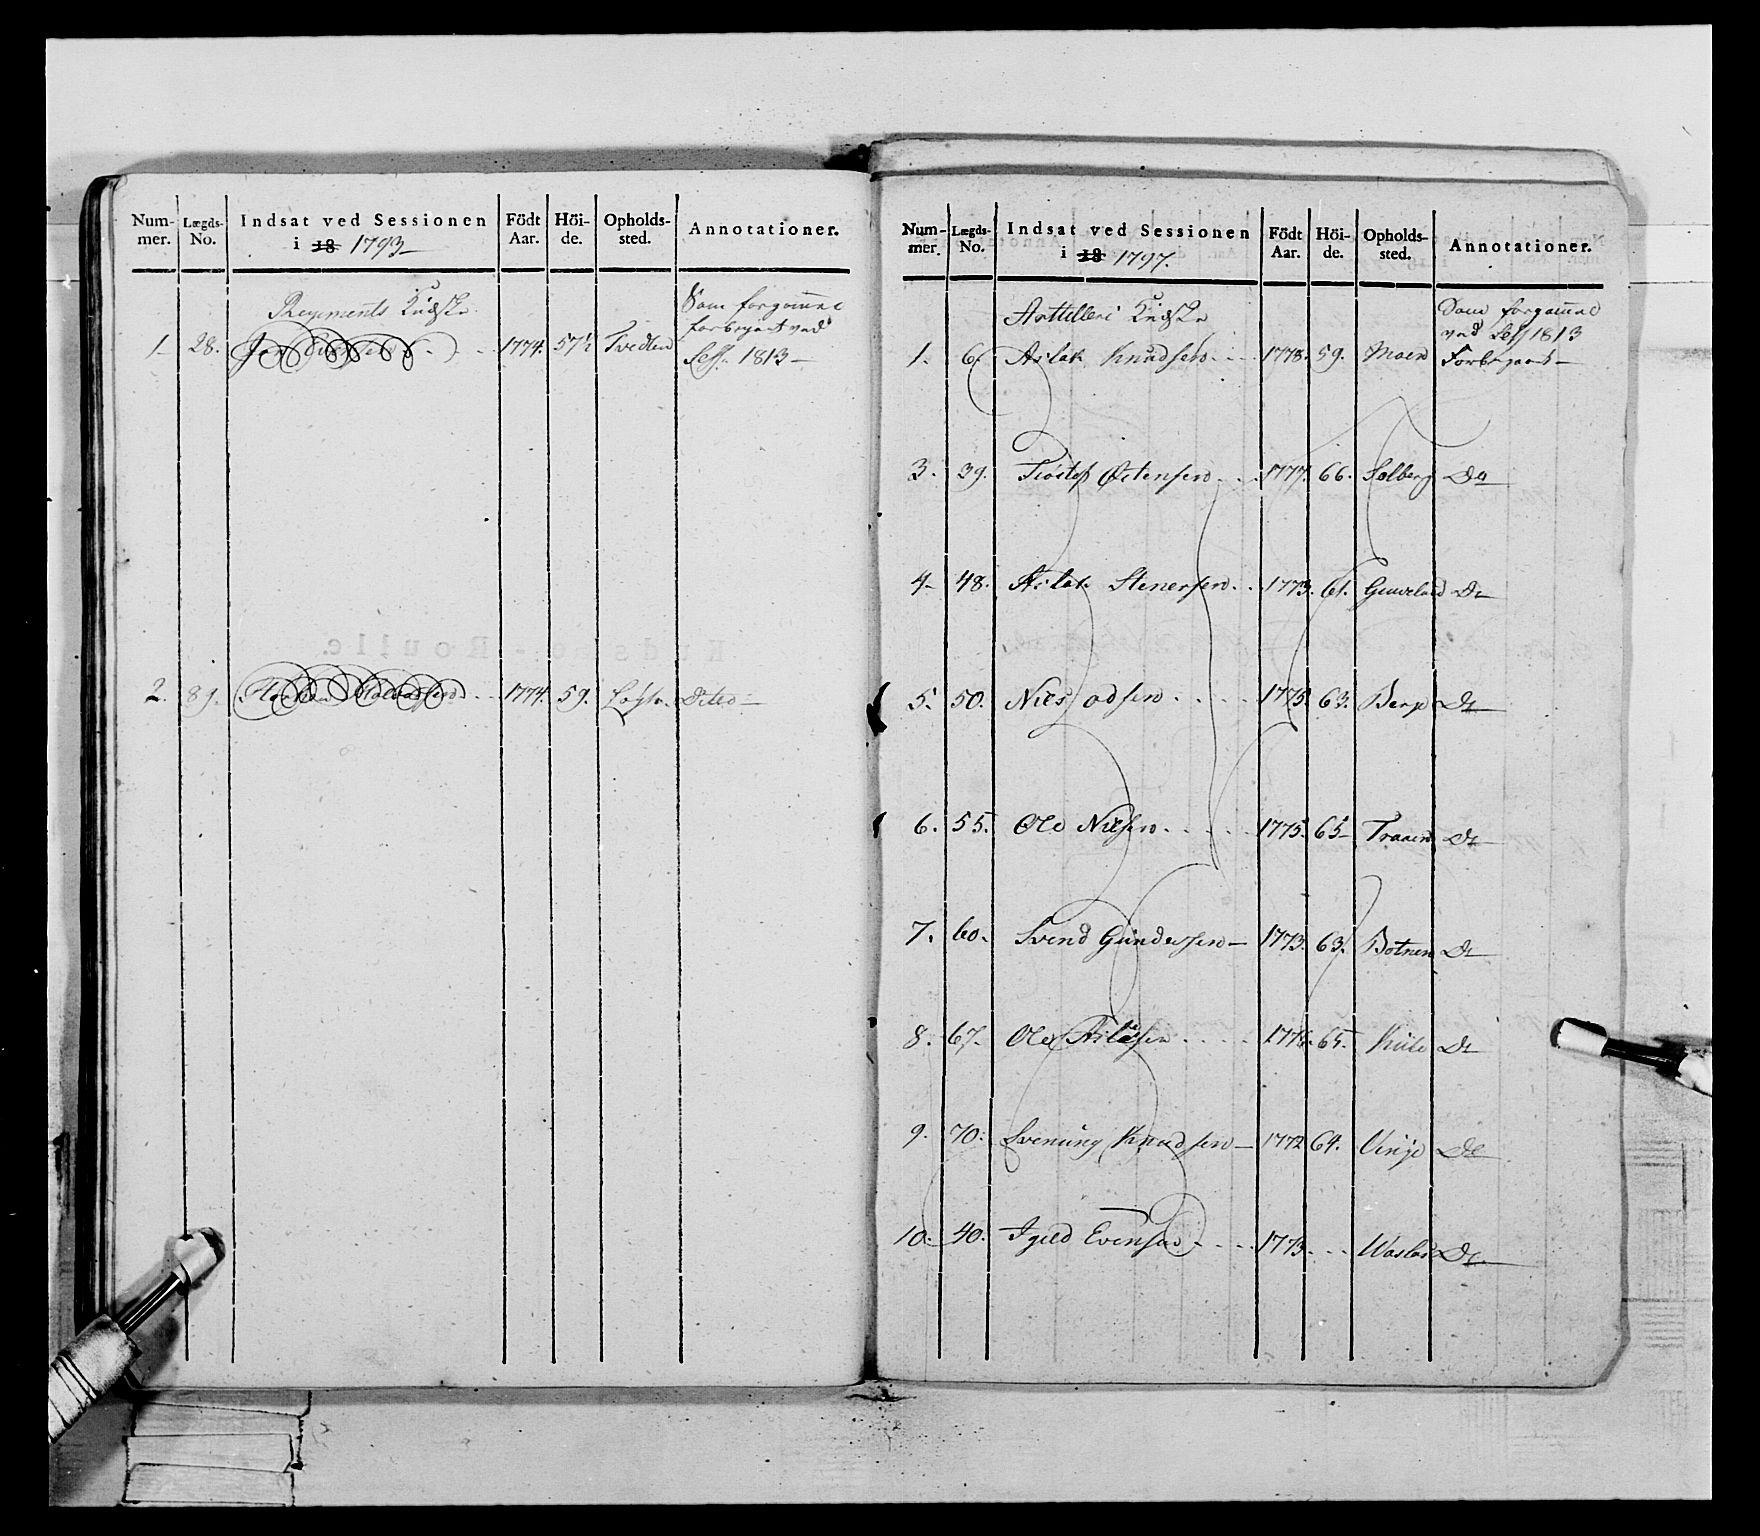 Num-mer. Lægds-No. Indsat ved Sessionen i 18 1793 Födt Aar. Höi-de. Opholds-sted. Annotationer.
Regiments Kudske
Som forgammel
forbigaaet ved
1. 28. 1774. 57½ Tvedten Sess. 1813
2. 89. 1774. 59. Dito
Num-mer. Lægds-No. Indsat ved Sessionen i 18 1797. Födt Aar. Höi-de. Opholds-sted. Annotationer.
Artilleri Kudske
Som forgammel
ved Sess 1813
1. 6. Aslak Knudsen 1778. 59. Moen Forbigaaet
3. 39. Østensen 1777. 66. Solberg Do
4. 48. Aslak Stenersen 1773. 61. Do
5. 50. Niels 1775. 63. Berge Do
6. 55. Ole Nielsen 1775. 65 Traaen Do
7. 60. Svend Gundersen 1773. 63. Botnen Do
8. 67. Ole 65. Do
9. 70. Svenung Knudsen 1772 64. Vinje Do
10. 40. Evensen 1773 Do